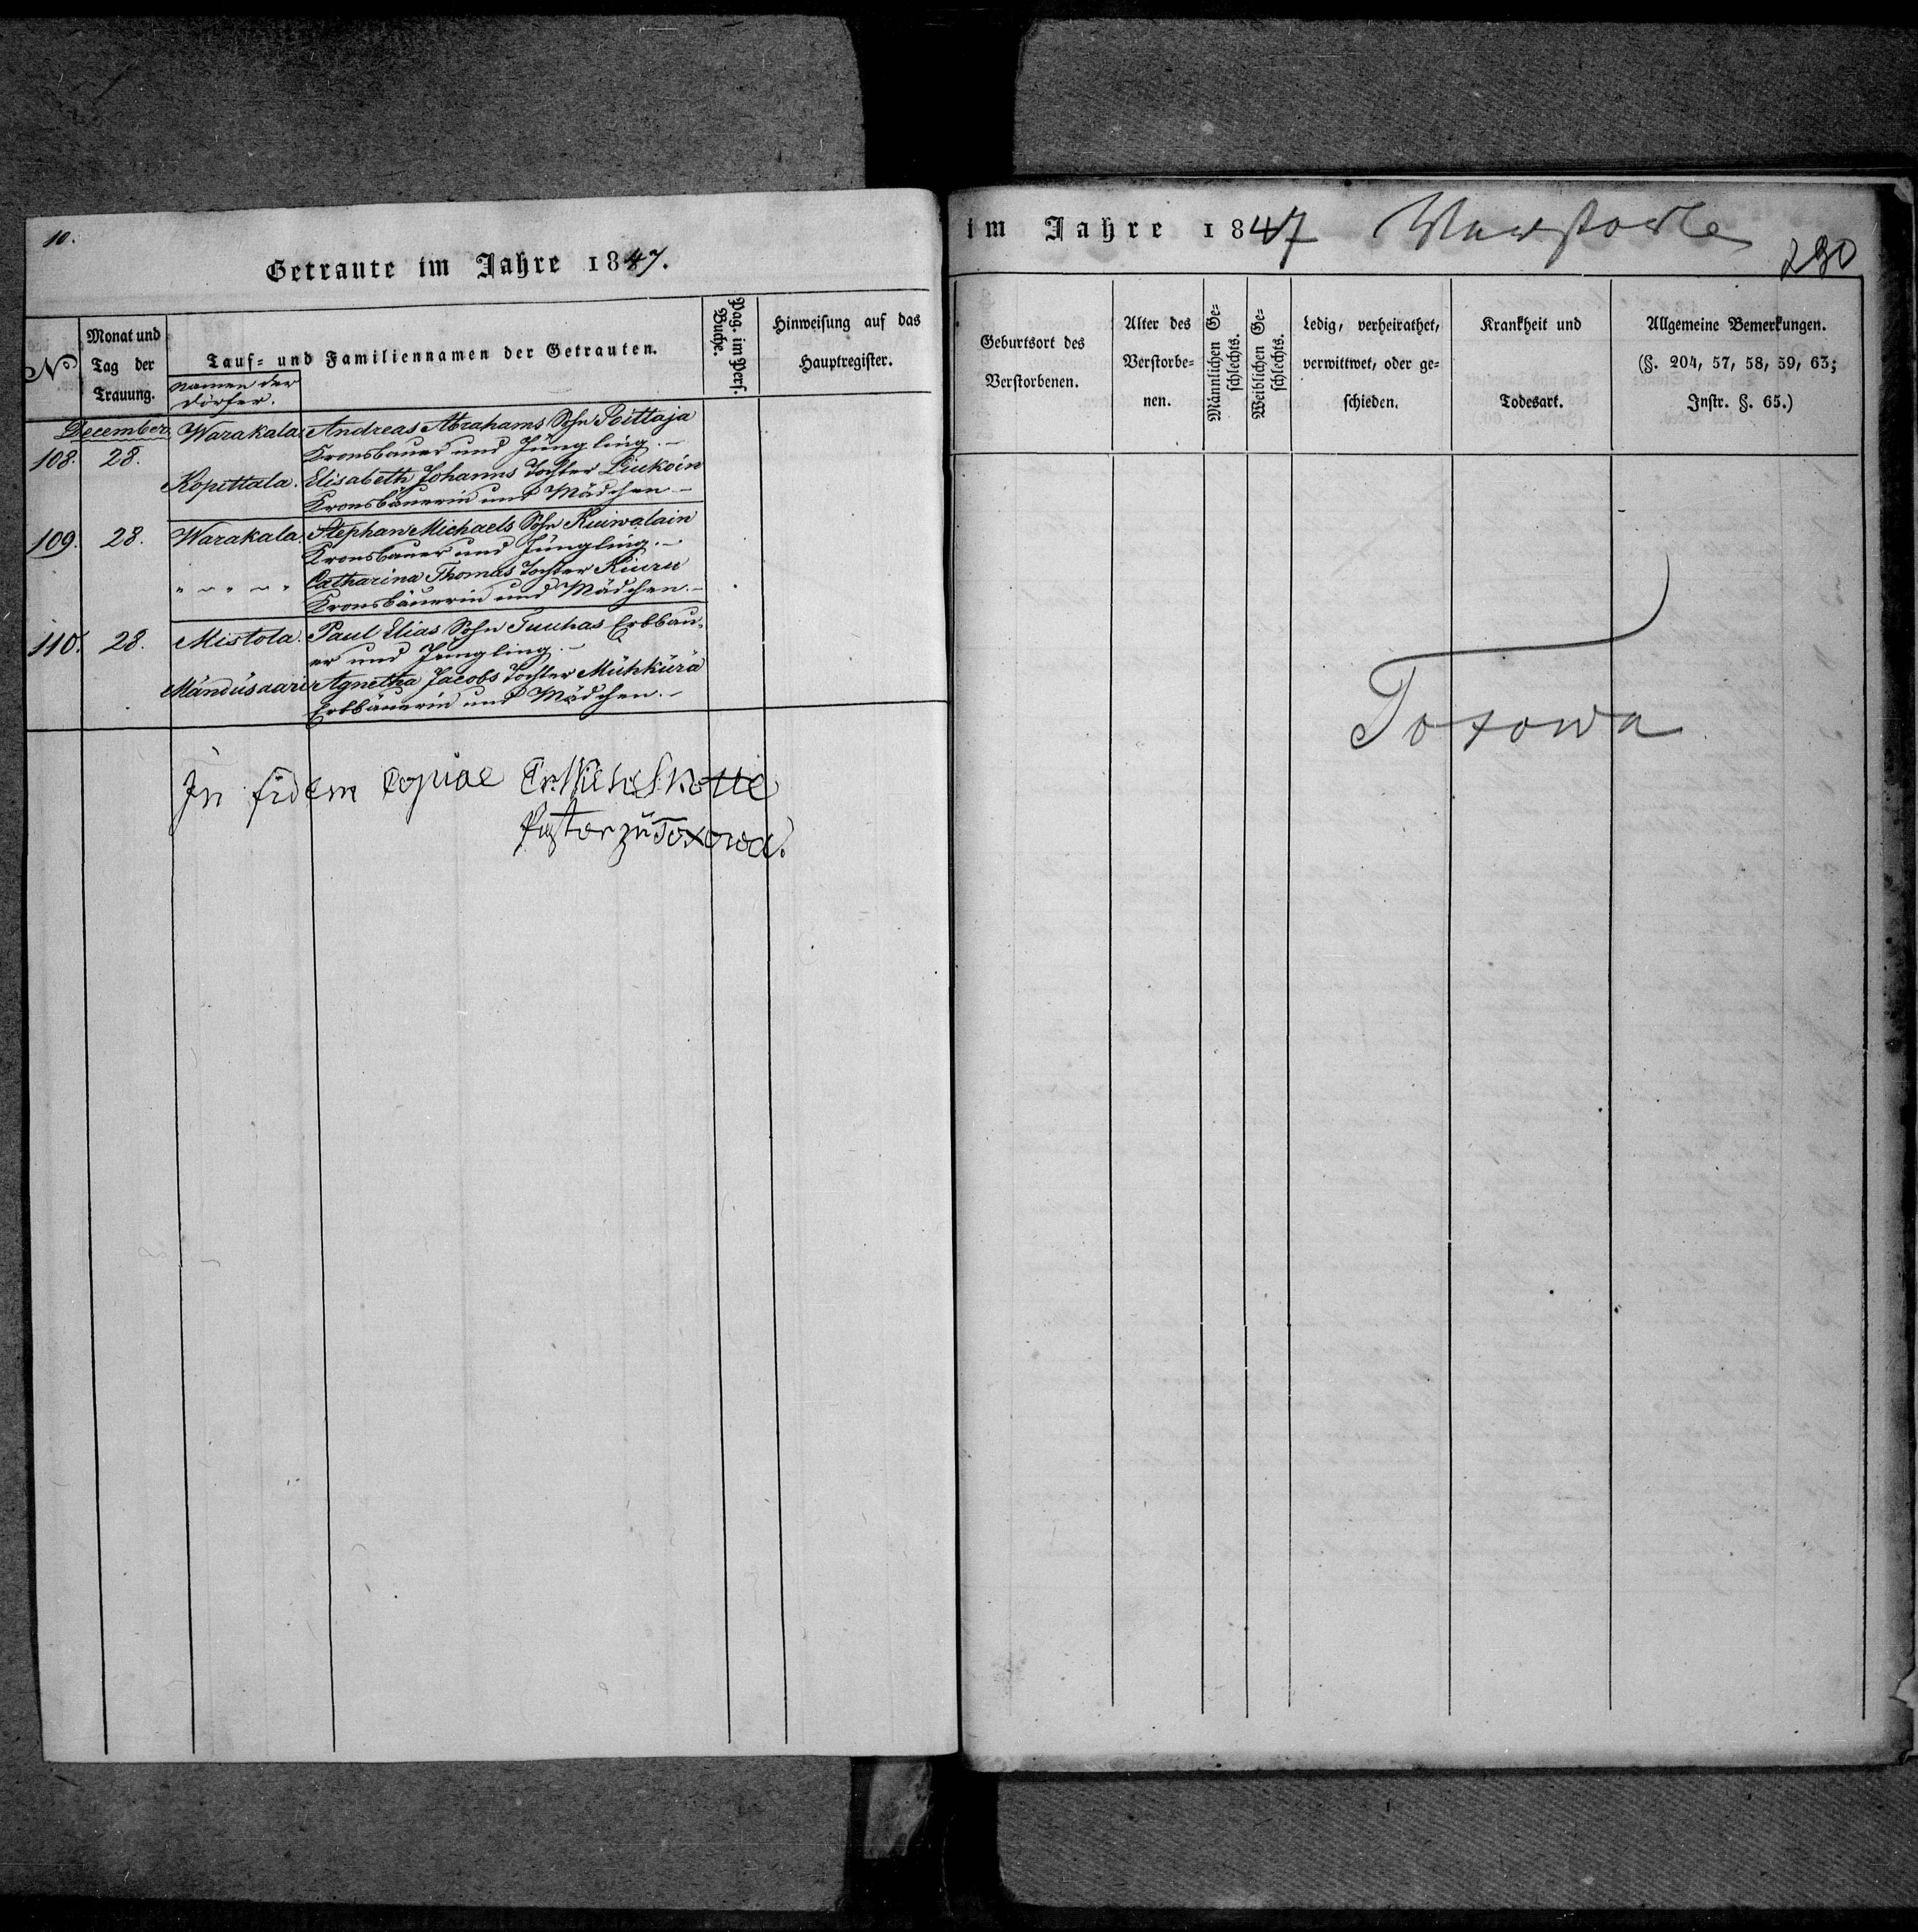 10.
Getraute im Jahre 1847.
No
Monat und
Tag der
Trauung.
Tauf- und Familiennamen der Getrauten.
Namen der
Dörfer.
Pag. im Pers.
Buche.
Hinweisung auf das
Hauptregister.
December.
108. 28. Warakala. Andreas Abrahams Sohn Poittaja
Kronsbauer und Jüngling.–
Kopittala. Elisabeth Johanns Tochter Liukoin
Kronsbäuerin und Mädchen.–
109. 28. Warakala. Stephan Michaels Sohn Kuiwalain
Kronsbauer und Jüngling.–
" ~ " ~ " Catharina Thomas Tochter Kiuru
Kronsbäuerin und Mädchen.–
110. 28. Mistola. Paul Elias Sohn Tuuhas Erbbau-
er und Jüngling.–
Mändüsaari Agnetha Jacobs Tochter Mühkürä
Erbbäuerin und Mädchen.–
In fidem copiae
Pastor zu Toxowa.
im Jahre 1847 Verstorbe
290
Geburtsort des
Verstorbenen.
Alter des
Verstorbe-
nen.
Männlichen Ge-
schlechts.
Weiblichen Ge-
schlechts.
Ledig, verheirathet,
verwittwet, oder ge-
schieden.
Krankheit und
Todesart.
Allgemeine Bemerkungen.
(§. 204, 57, 58, 59, 63;
Instr. §. 65.)
Toxowa